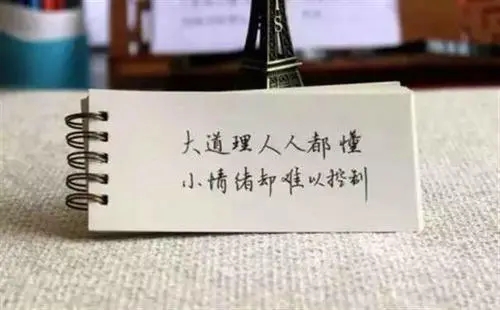 IS
大道理人人都懂
小情绪却难以控制